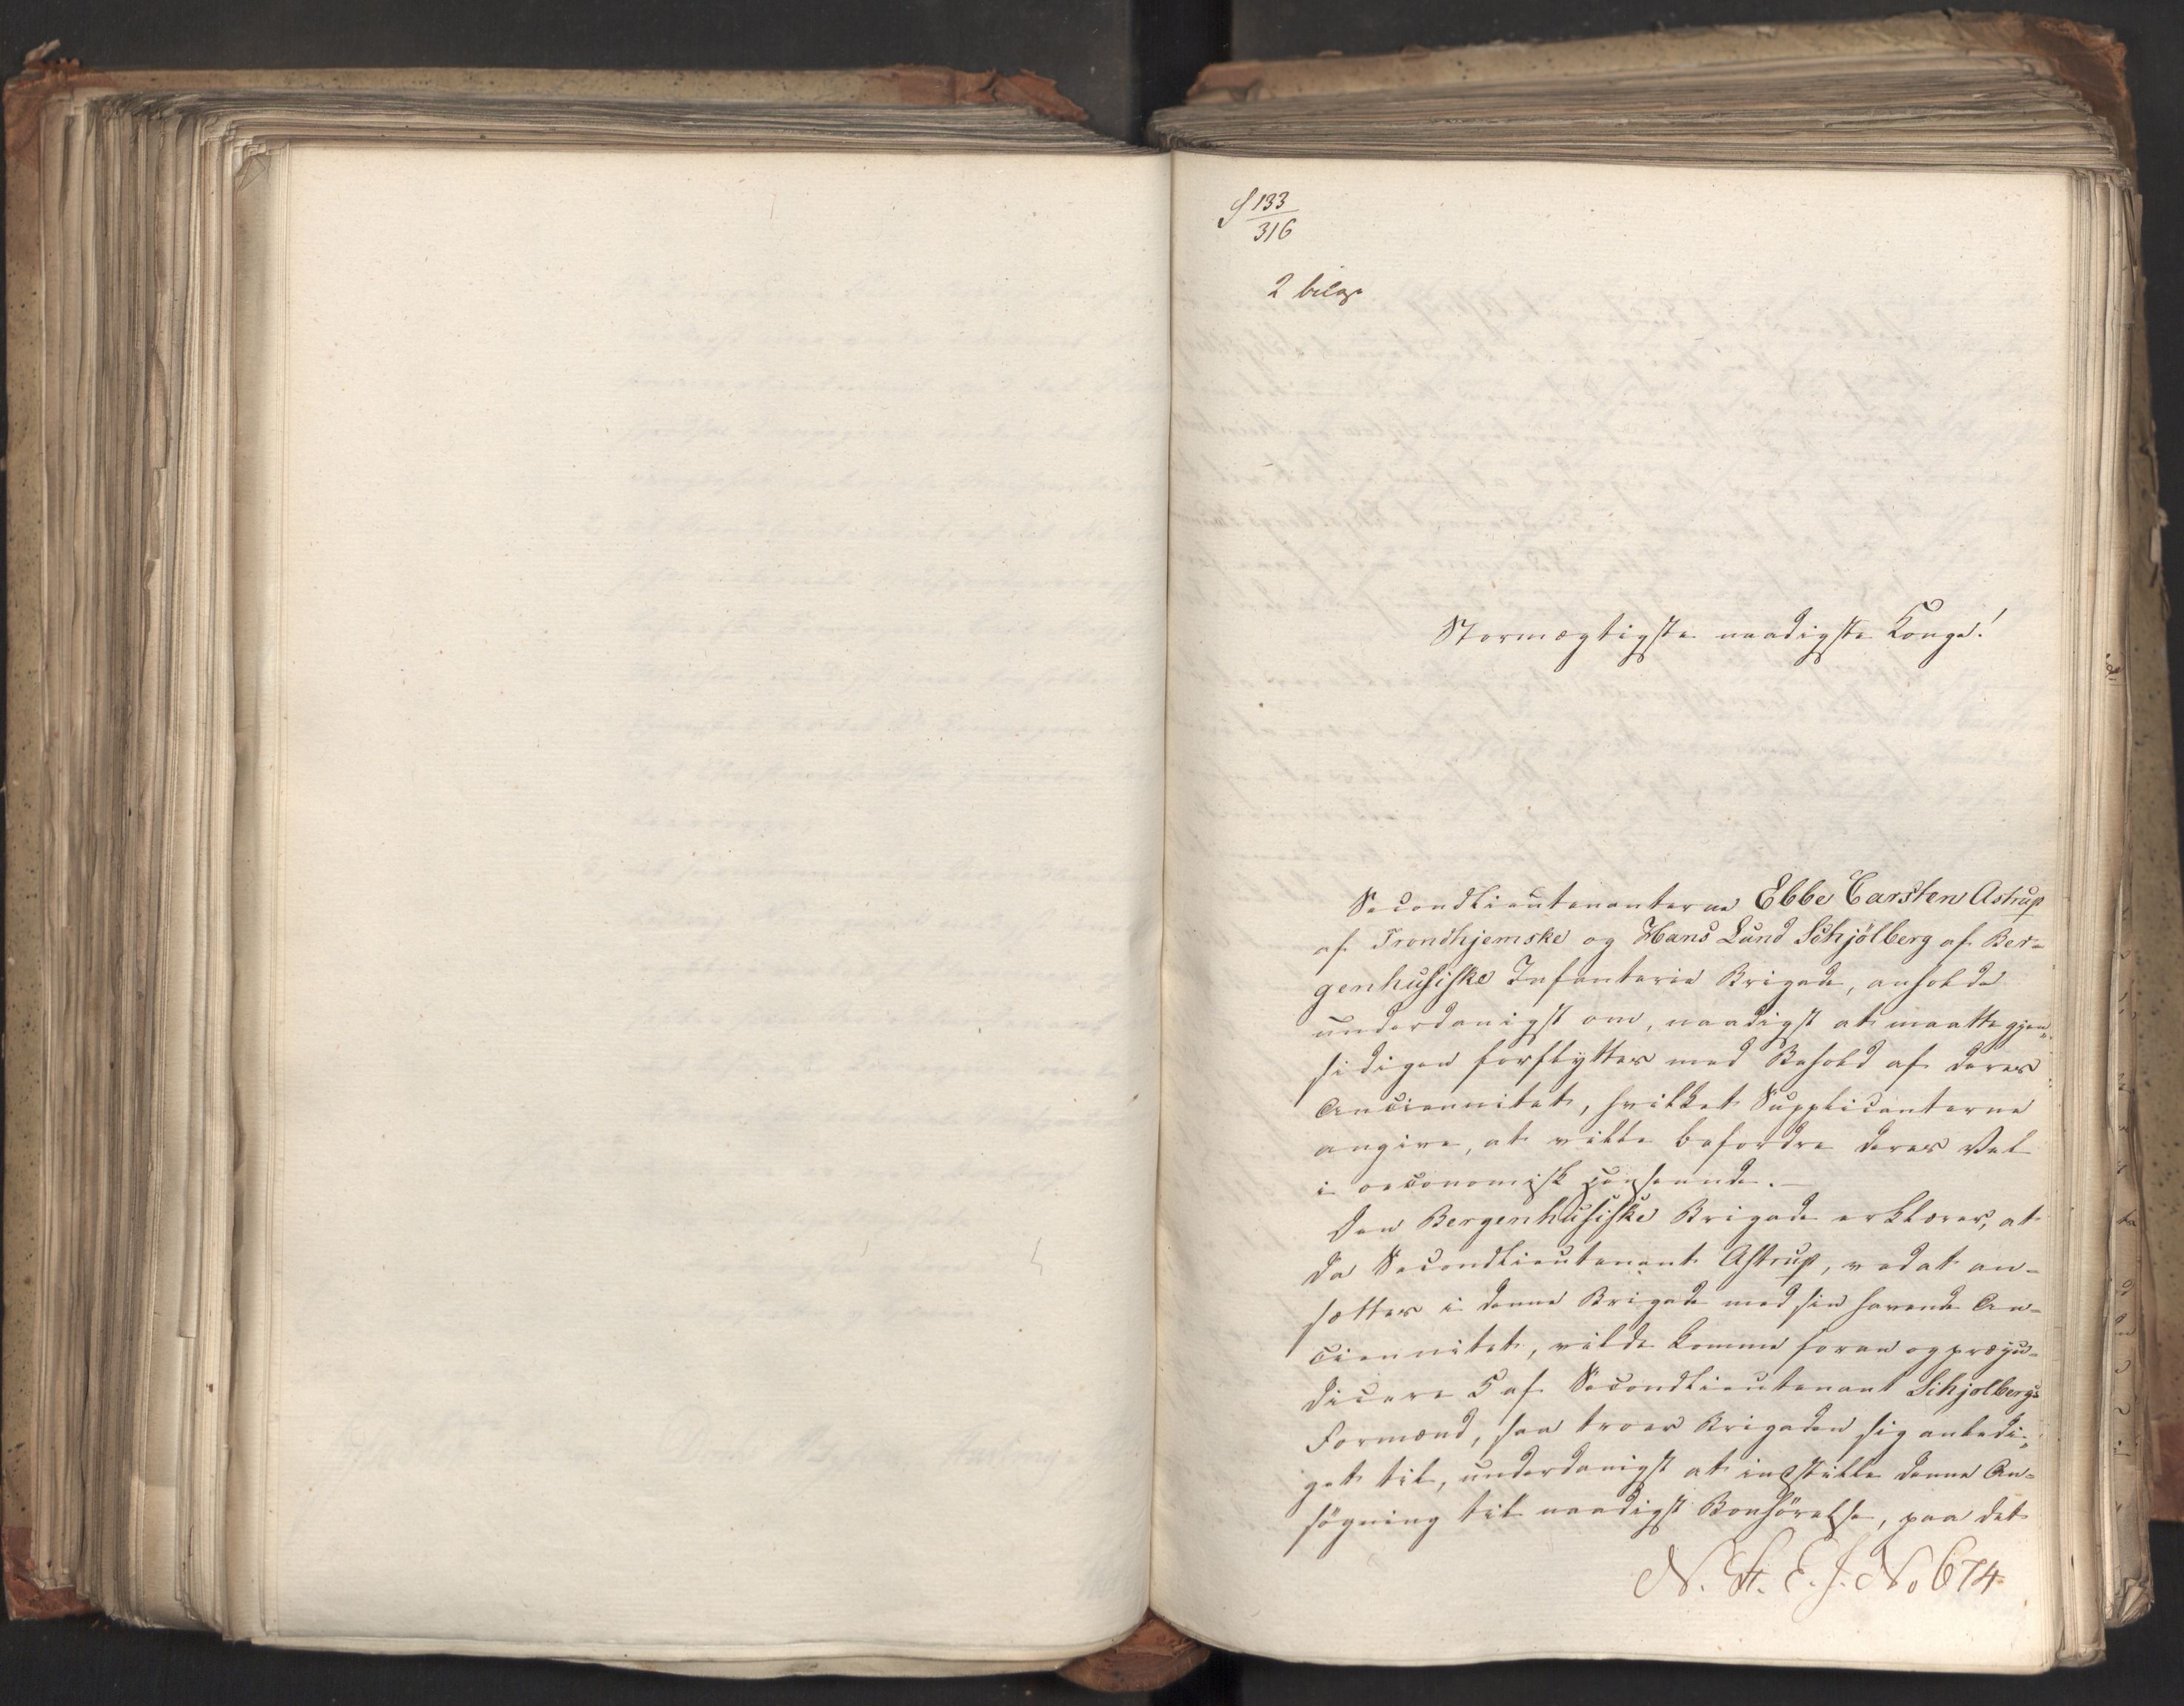 S 133
316
2 bilag
Stormægtigste naadigste Konge!
Secondlieutenanterne Ebbe Carsten Astrup
af Trondhjemske og Hans Lund Schjölberg af Ber-
genhusiske Infanterie Brigade, anholde
underdanigst om, naadigst at maatte gjen-
sidigen forflyttes med Behold af deres
Anciennitet, hvilket Supplicanterne
angive, at ville befordre deres Vel
i oeconomisk Henseende.—
Den Bergenhusiske Brigade erklærer, at
da Secondlieutenant Astrup, ved at an-
sættes i denne Brigade med sin havende An-
ciennitet, vilde komme foran og præju-
dicere 5 af Secondlieutenant Schjølbergs
Formænd, saa troer Brigaden sig anledi-
get til, underdanigst at indstille denne An-
søgning til naadigst Bønhörelse, paa det
N. St. E. J. No 674